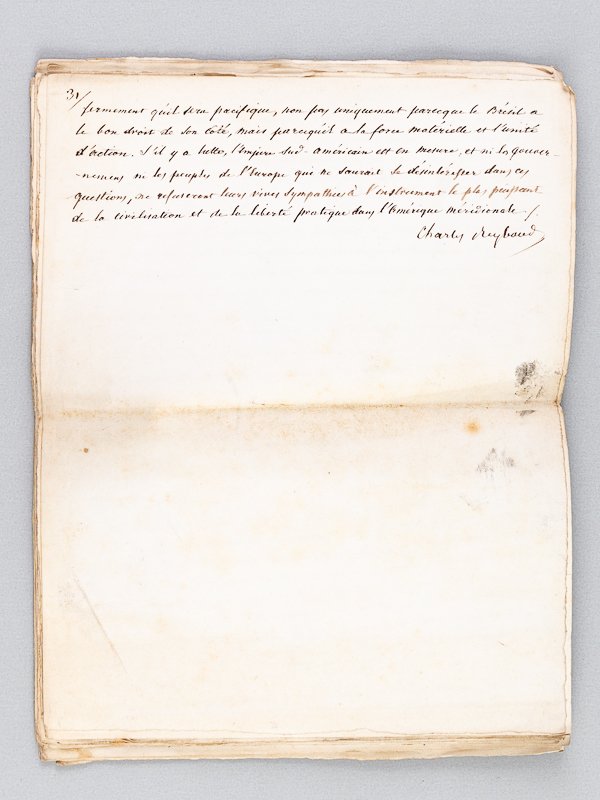 31/
fermement qu'il sera pacifique, non pas uniquement parceque le Brésil a
le bon droit de son côté, mais parcequ'il a la force matérielle et l'unité
d'action. S'il y a lutte, l'Empire Sud-américain est en mesure, et ni les Gouver-
-nemens ni les peuples de l'Europe qui ne sauraient se désintéresser dans ces
questions, ne refuseront leurs vives sympathies à l'instrument le plus puissant
de la civilisation et de la liberté pratique dans l'Amérique méridionale ./.
Charles Reybaud